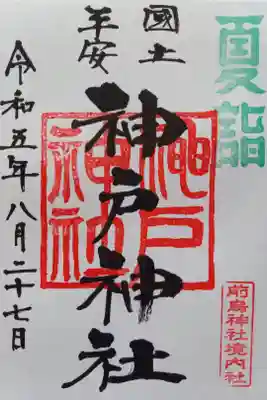 夏詣
國土
平安
神戸神社
神戸
神社
令和五年八月二十七日
前鳥神社境内社